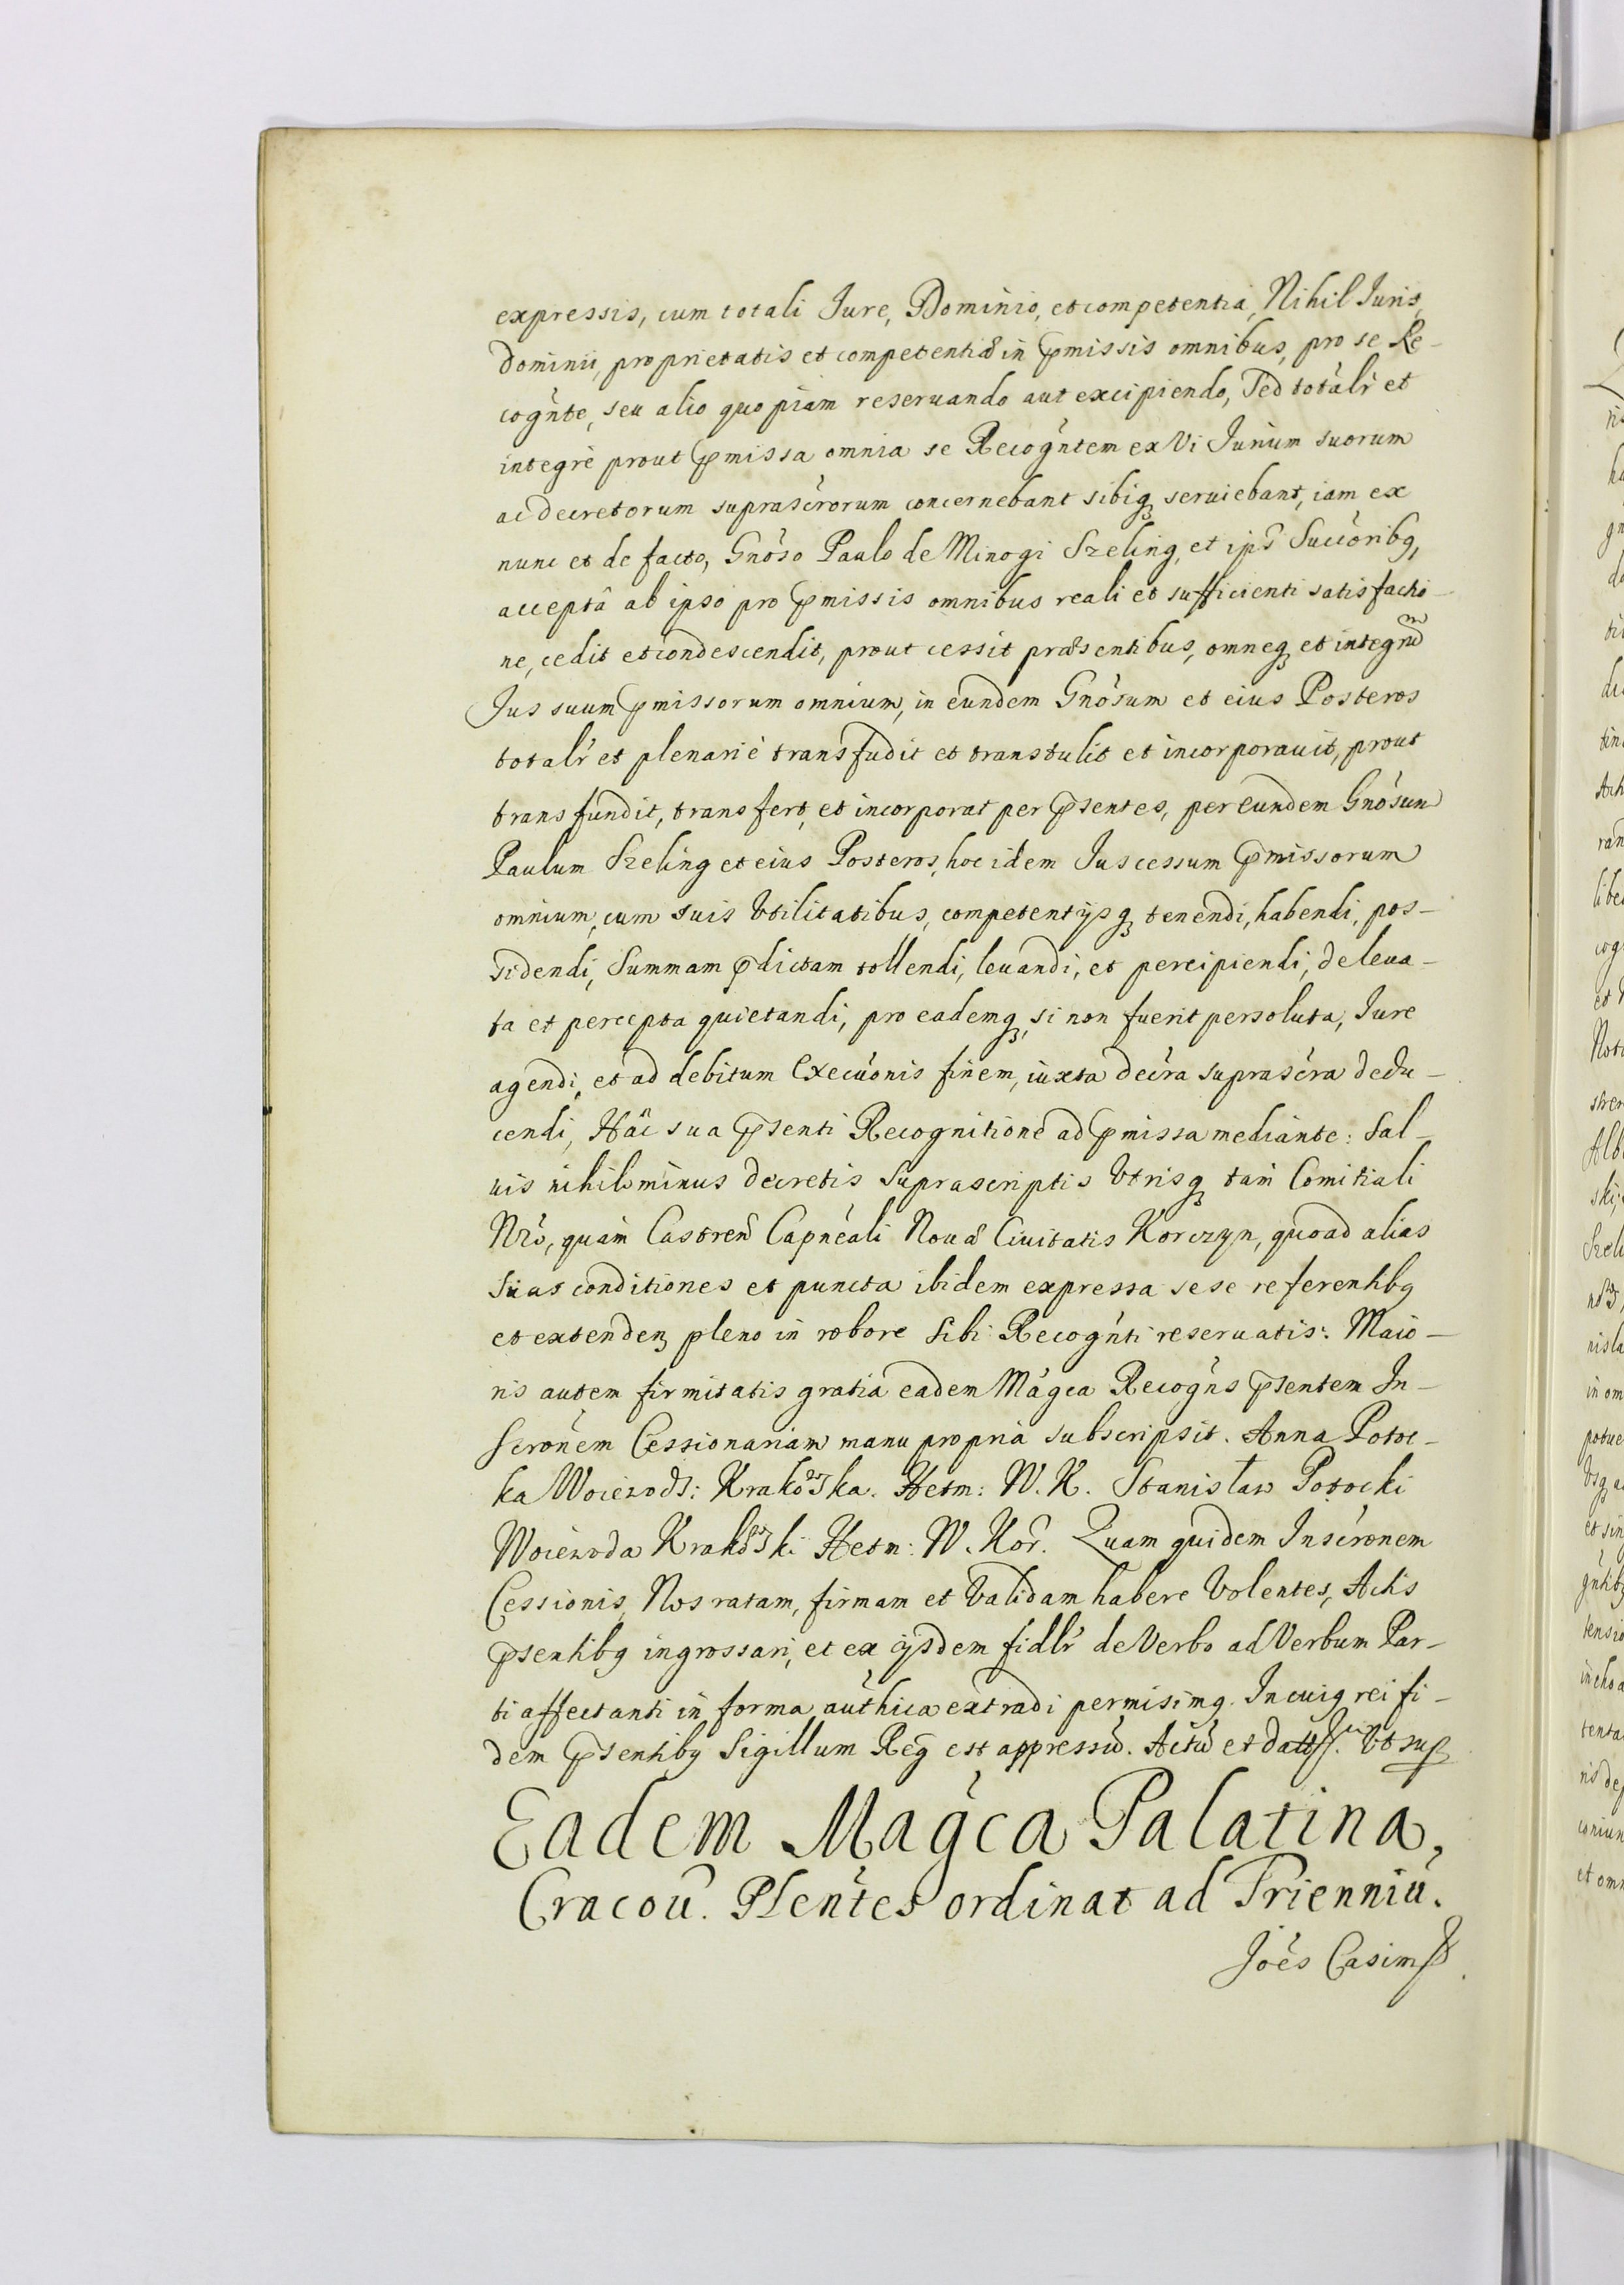 expressis, cum totali Jure, Dominio, et competentia, Nihil Juris,
Dominii, proprietatis et competentiæ in p̄missis omnibus, pro se Re-
cogn̄te, seu alio quopiam reseruando aut excipiendo, Sed totalr̄ et
integrè prout p̄missa omnia se Recogn̄tem ex Vi Jurium suorum
ac decretorum suprascr̄orum concernebant sibiq; seruiebant, iam ex
nunc et de facto, Gn̄oso Paulo de Minogi Szeling, et ips̄ Succ̄oribq,
acceptâ ab ipso pro p̄missis omnibus reali et sufficienti satisfactio-
ne, cedit et condescendit, prout cessit præsentibus, omneq; et integrū
Jus suum p̄missorum omnium, in eundem Gn̄osum et eius Posteros
totalr̄ et plenariè transfudit et transtulit et incorporauit, prout
transfundit, transfert, et incorporat per p̄sentes, per eundem Gn̄osum
Paulum Szeling et eius Posteros, hoc idem Jus cessum p̄missorum
omnium, cum suis Vtilitatibus, competentijsq; tenendi, habendi, pos-
sidendi, Summam p̄dictam tollendi, leuandi, et percipiendi, de leua-
ta et percepta quietandi, pro eademq; si non fuerit persoluta, Jure
agendi, et ad debitum Execu̅onis finem, iuxta decr̄a suprascr̄a dedu-
cendi, Hâc sua p̄senti Recognitione ad p̄missa mediante: Sal-
uis nihilominus decretis suprascriptis Vtrisq; tam Comitiali
Nr̄o, quàm Castren̄ Capn̄eali Nouæ Ciuitatis Korczyn, quoad alias
suas conditiones et puncta ibidem expressa sese referentibq
et extenden; pleno in robore sibi Recogn̄ti reseruatis: Maio-
ris autem firmitatis gratia eadem Magc̄a Recogn̄s p̄sentem In-
scr̄onem Cessionariam manu propria subscripsit. Anna Potoc-
ka Woiewodz: Krakowska. Hetm: W. K. Stanisław Potocki
Woiewoda Krakowski Hetm: W. Kor̄. Quam quidem Inscr̄onem
Cessionis, Nos ratam, firmam et Validam habere Volentes, Actis
p̄sentibq ingrossari, et ex ijsdem fidlr̄ de Verbo ad Verbum Par-
ti affectanti in forma auth̄ica extradi permisimq. In cuiq rei fi-
dem p̄sentibq Sigillum Reg̅ est appressū. Actū et datt. Vt sup̱
Eadem Magc̄a Palatina,
Cracou̅. Plen̄tes ordinat ad Trienniū.
Joēs Casim